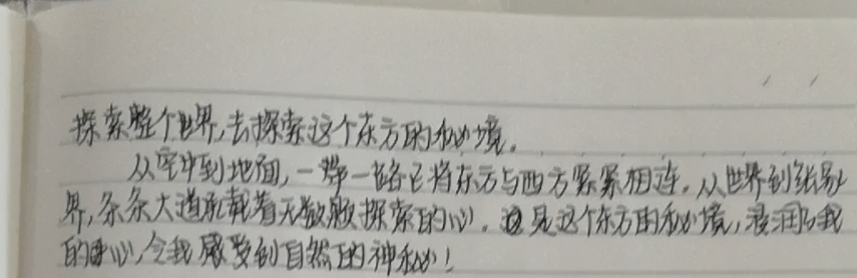 探索整个世界,去探索这个东方的秘境。
从空中到地面,一带一路已将东方与西方紧紧相连。从世界到
界,条条大道承载着无数颗探索的心。是这个东方的秘境,浸润了我
的心,令我感受到自然的神秘!